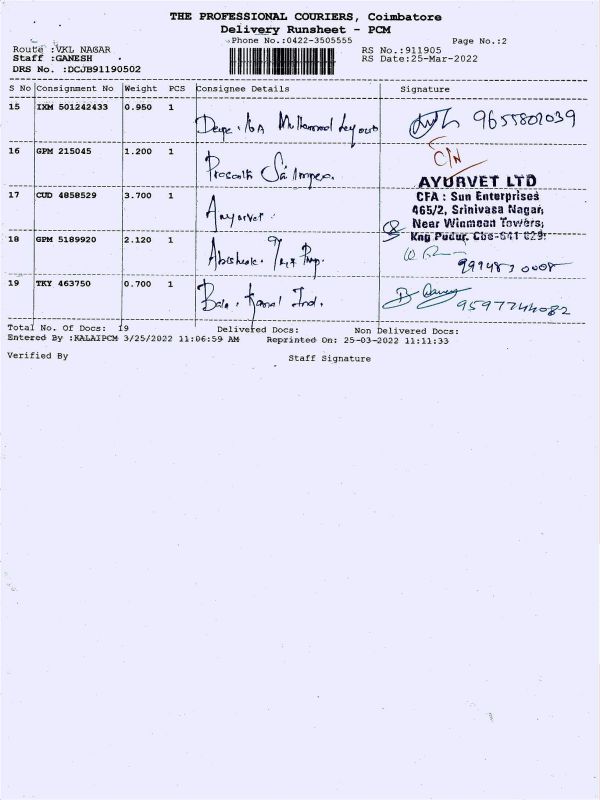 THE PROFESSIONAL COURIERS, Coimbatore
Delivery Runsheet - PCM
Phone No.:0422-3505555 Page No.:2
Route :VKL NAGAR RS No.:911905
Staff :GANESH RS Date:25-Mar-2022
DRS No. :DCJB91190502
S No Consignment No Weight PCS Consignee Details Signature
15 IXM 501242433 0.950 1
9655802039
16 GPM 215045 1.200 1
C/N
AYURVET LTD
17 CUD 4858529 3.700 1 CFA : Sun Enterprises
465/2, Srinivasa Nagar,
Near Winmean Towers,
18 GPM 5189920 2.120 1 Kng Pudur, Cbe-641 629.
19 TKY 463750 0.700 1
Bala. Kamal Ind. 9597744082
Total No. Of Docs: 19 Delivered Docs: Non Delivered Docs:
Entered By :KALAIPCM 3/25/2022 11:06:59 AM Reprinted On: 25-03-2022 11:11:33
Verified By Staff Signature